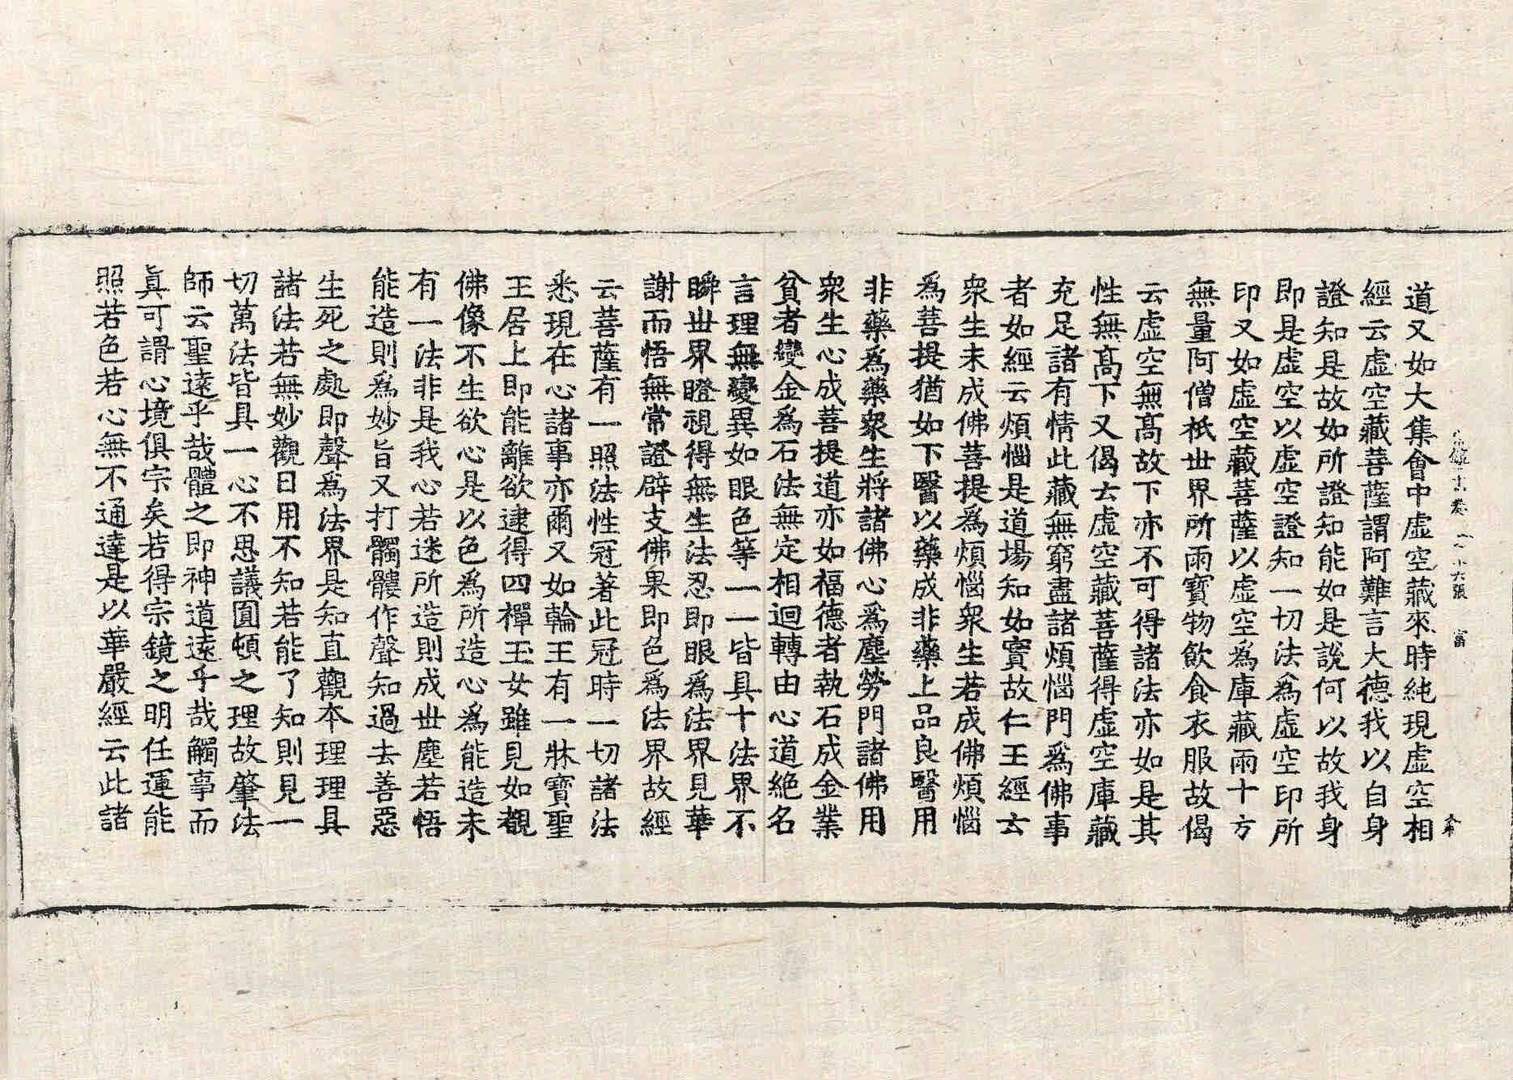 道又如大集會中虛空藏來時純現虛空相
經云虛空藏菩薩謂阿難言大德我以自身
證知是故如所證知能如是說何以故我身
即是虛空以虛空證知一切法爲虛空印所
印又如虛空藏菩薩以虛空爲庫藏雨十方
無量阿僧祇世界所雨寶物飮食衣服故偈
云虛空無髙故下亦不可得諸法亦如是其
性無髙下又偈云虛空藏菩薩得虛空庫藏
充足諸有情此藏無窮盡諸煩惱門爲佛事
者如經云煩惱是道場知如實故仁王經云
衆生未成佛菩提爲煩惱衆生若成佛煩惱
爲菩提猶如下醫以藥成非藥上品良醫用
非藥爲藥衆生將諸佛心爲塵勞門諸佛用
衆生心成菩提道亦如福德者執石成金業
貧者變金爲石法無定相迴轉由心道絕名
言理無變異如眼色等一一皆具十法界不
瞬世界瞪視得無生法忍即眼爲法界見華
謝而悟無常證辟支佛果即色爲法界故經
云菩薩有一照法性冠著此冠時一切諸法
悉現在心諸事亦爾又如輪王有一牀寶聖
王居上即能離欲逮得四禪玉女雖見如觀
佛像不生欲心是以色爲所造心爲能造未
有一法非是我心若迷所造則成世塵若悟
能造則爲妙旨又打髑髏作聲知過去善惡
生死之處即聲爲法界是知直觀本理理具
諸法若無妙觀日用不知若能了知則見一
切萬法皆具一心不思議圓頓之理故肇法
師云聖遠乎哉體之即神道遠乎哉觸事而
眞可謂心境俱宗矣若得宗鏡之明任運能
照若色若心無不通達是以華嚴經云此諸